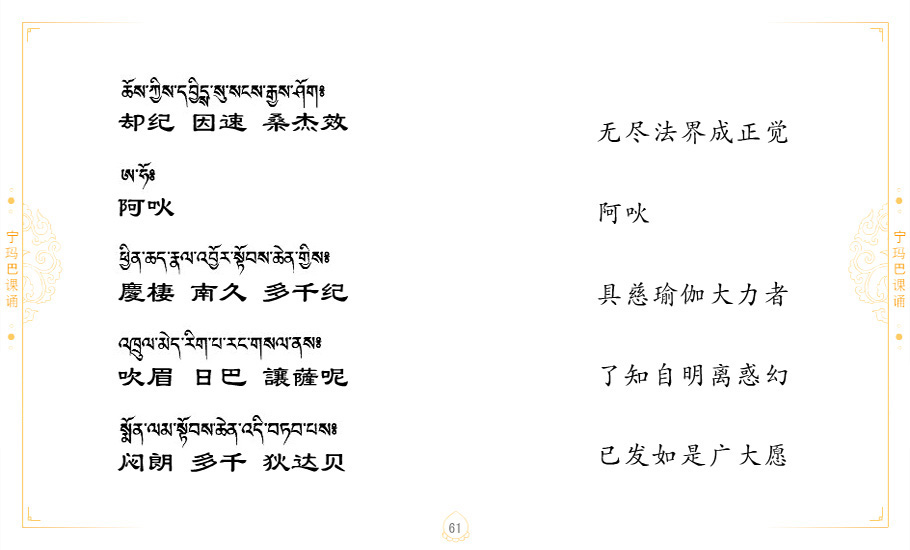 ཆོས་ཀྱིས་དབྱིངྶ་སུ་སངས་རྒྱས་ཤོག༔
却纪 因速 桑杰效
无尽法界成正觉
ཨ་ཧོ༔
阿吙
阿吙
ཕྱིན་ཆད་རྣལ་འབྱོར་སྟོབས་ཆེན་གྱིས༔
慶棲 南久 多千纪
具慈瑜伽大力者
འཁྲུལ་མེད་རིག་པ་རང་གསལ་ནས༔
吹眉 日巴 讓薩呢
了知自明离惑幻
སྨོན་ལམ་སྟོབས་ཆེན་འདི་བཏབ་པས༔
闷朗 多千 狄达贝
已发如是广大愿
宁玛巴课诵
宁玛巴课诵
61